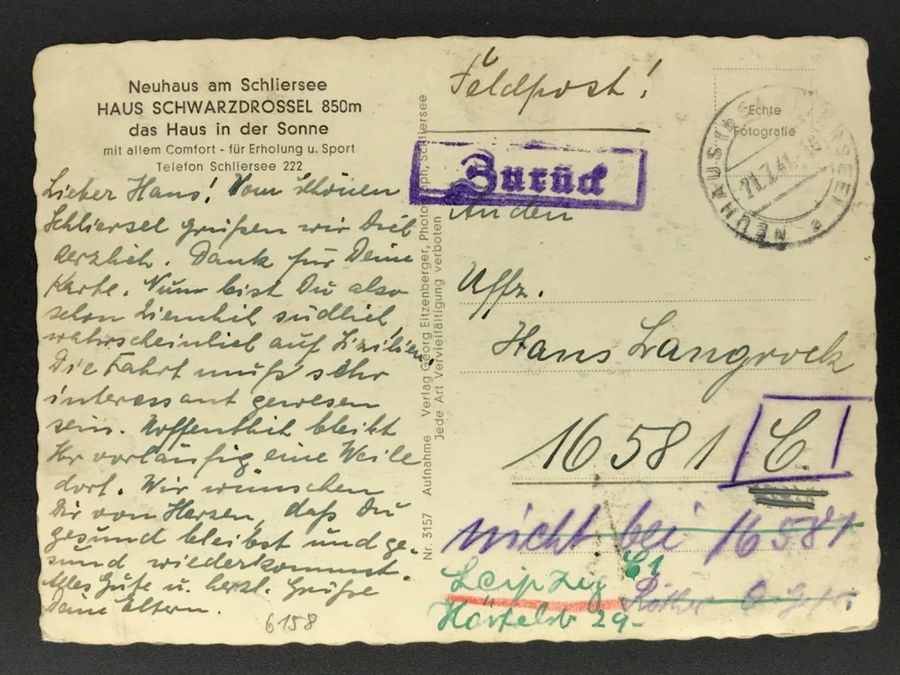 Neuhaus am Schliersee
HAUS SCHWARZDROSSEL 850m
das Haus in der Sonne
mit allem Comfort - für Erholung u. Sport
Telefon Schliersee 222
Lieber Hans! Vom schönen
Schliersee grüßen wir Dich
herzlich. Dank für Deine
Karte. Nun bist Du also
schon ziemlich südlich,
wahrscheinlich auf Sizilien.
Die Fahrt muß sehr
interessant gewesen
sein. Hoffentlich bleibt
Ihr vorläufig eine Weile
dort. Wir wünschen
Dir von Herzen, daß Du
gesund bleibst und ge-
sund wiederkommst.
Alles Gute u. herzl. Grüße
Deine Eltern.
6158
Nr. 3157 Aufnahme Verlag Georg Eitzenberger, Photograph, Schliersee
Jede Art Vervielfältigung verboten
Feldpost!
Zurück
Echte
Fotografie
NEUHAUS
21.7.41
An den
Uffz.
Hans Langrock
16581 C.
nicht bei 16581
Leipzig C1
29